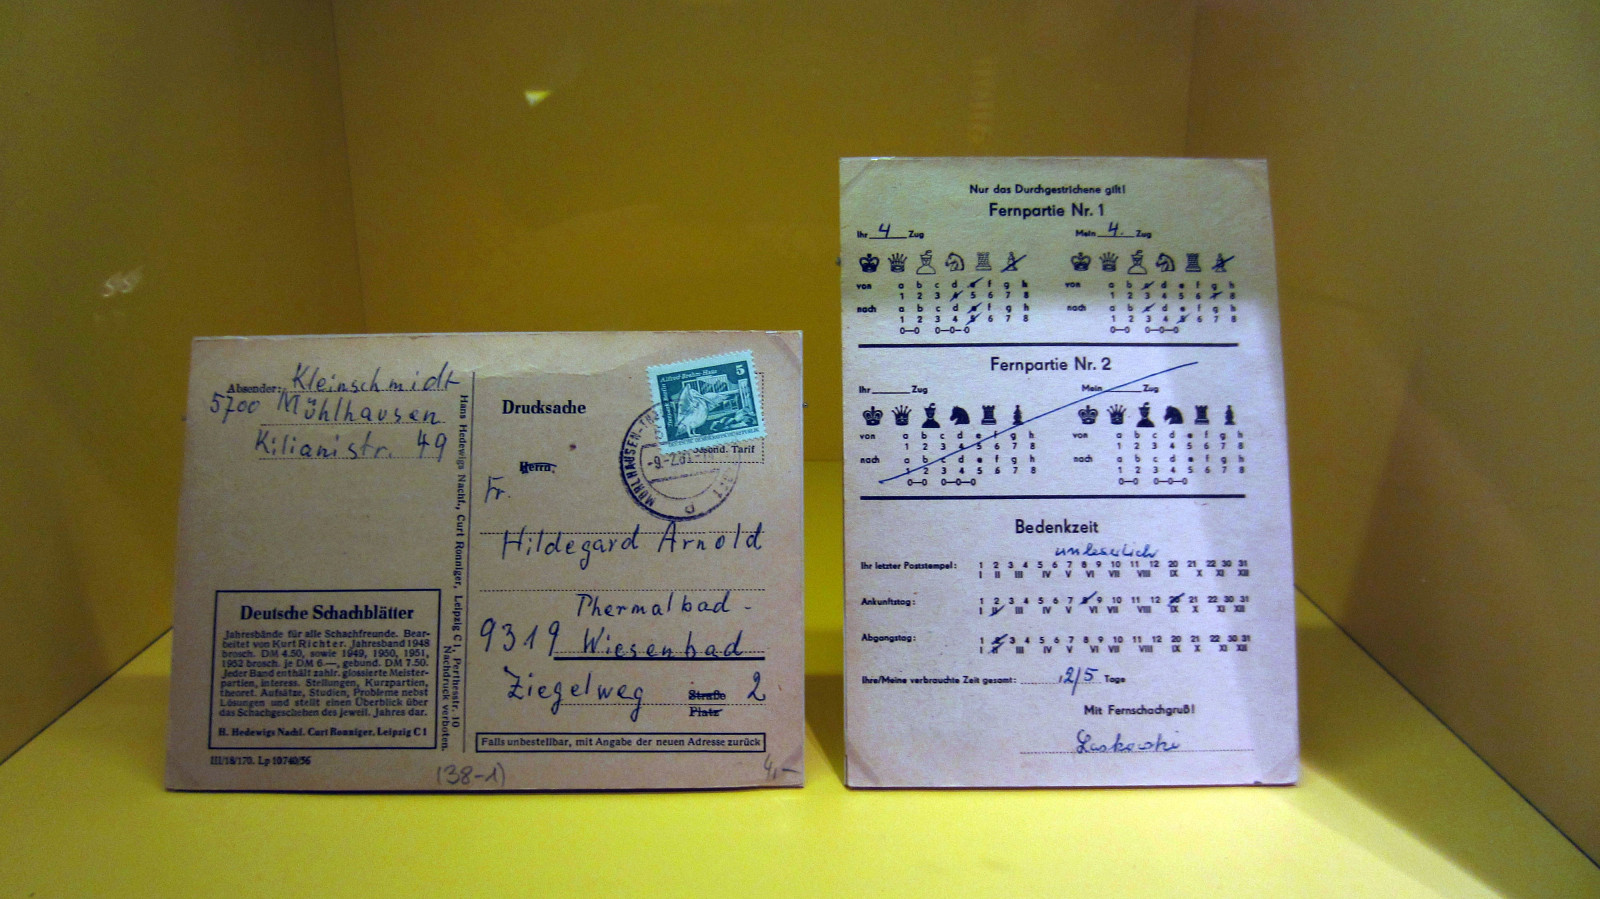 Absender: Kleinschmidt
5700 Mühlhausen
Kilianistr. 49
Deutsche Schachblätter
Jahresbände für alle Schachfreunde. Bear-
beitet von Kurt Richter. Jahresband 1948
brosch. DM 4.50, sowie 1949, 1950, 1951,
1952 brosch. je DM 6.—, gebund. DM 7.50.
Jeder Band enthält zahlr. glossierte Meister-
partien, interess. Stellungen, Kurzpartien,
theoret. Aufsätze, Studien, Probleme nebst
Lösungen und stellt einen Überblick über
das Schachgeschehen des jeweil. Jahres dar.
H. Hedewigs Nachf. Curt Ronniger, Leipzig C 1
III/18/170. Lp 10740/56
(38-1)
Hans Hedewigs Nachf., Curt Ronniger, Leipzig C 1, Perthesstr. 10
Nachdruck verboten.
Drucksache
5
Alfred-Brehm-Haus
MÜHLHAUSEN
Besond. Tarif
Herrn.
Fr.
Hildegard Arnold
Thermalbad-
9319 Wiesenbad
Ziegelweg Straße 2
Platz
Falls unbestellbar, mit Angabe der neuen Adresse zurück
4,-
Nur das Durchgestrichene gilt!
Fernpartie Nr. 1
Ihr 4 Zug Mein 4. Zug
von a b c d e f g h von a b c d e f g h
1 2 3 4 5 6 7 8 1 2 3 4 5 6 7 8
nach a b c d e f g h nach a b c d e f g h
1 2 3 4 5 6 7 8 1 2 3 4 5 6 7 8
0—0 0—0—0 0—0 0—0—0
Fernpartie Nr. 2
Ihr Zug Mein Zug
von a b c d e f g h von a b c d e f g h
1 2 3 4 5 6 7 8 1 2 3 4 5 6 7 8
nach a b c d e f g h nach a b c d e f g h
1 2 3 4 5 6 7 8 1 2 3 4 5 6 7 8
0—0 0—0—0 0—0 0—0—0
Bedenkzeit
unleserlich
Ihr letzter Poststempel: 1 2 3 4 5 6 7 8 9 10 11 12 20 21 22 30 31
I II III IV V VI VII VIII IX X XI XII
Ankunftstag: 1 2 3 4 5 6 7 8 9 10 11 12 20 21 22 30 31
I II III IV V VI VII VIII IX X XI XII
Abgangstag: 1 2 3 4 5 6 7 8 9 10 11 12 20 21 22 30 31
I II III IV V VI VII VIII IX X XI XII
Ihre/Meine verbrauchte Zeit gesamt: 12/5 Tage
Mit Fernschachgruß!
Laskowski